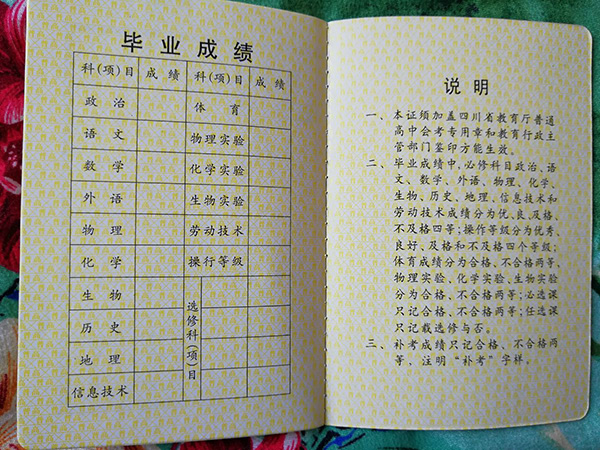 毕业成绩
科(项)目 成绩 科(项)目 成绩
政治 体育
语文 物理实验
数学 化学实验
外语 生物实验
物理 劳动技术
化学 操行等级
生物 选修科(项)目
历史
地理
信息技术
说明
一、本证须加盖四川省教育厅普通
高中会考专用章和教育行政主
管部门签印方能生效。
二、毕业成绩中,必修科目政治、语
文、数学、外语、物理、化学、
生物、历史、地理、信息技术和
劳动技术成绩分为优、良、及格、
不及格四等;操作等级分为优秀、
良好、及格和不及格四个等级;
体育成绩分为合格、不合格两等,
物理实验、化学实验、生物实验
分为合格、不合格两等;必选课
只记合格、不合格两等;任选课
只记载选修与否。
三、补考成绩只记合格、不合格两
等,注明“补考”字样。